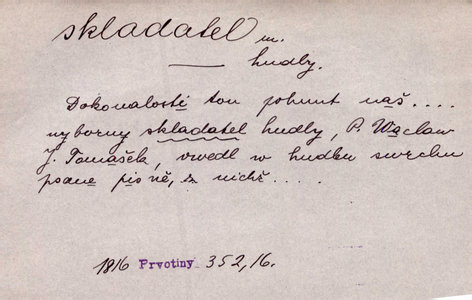 skladatel m.
— hudby.
Dokonalostí tou pohnut náš ....
výborný skladatel hudby, P. Wáclaw
J. Tomášek, uvedl w hudbu swrchu
psané písně, z nichž ....
1816 Prvotiny 352,16.